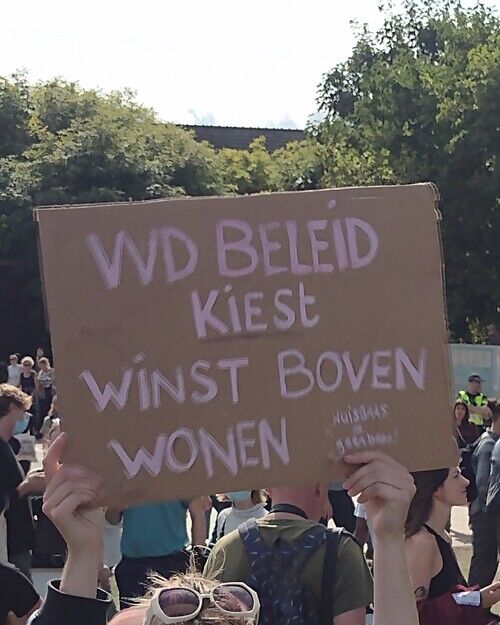 VVD BELEID
KiEST
WiNST BOVEN
WONEN
HUISBAAS
is
geen baan!